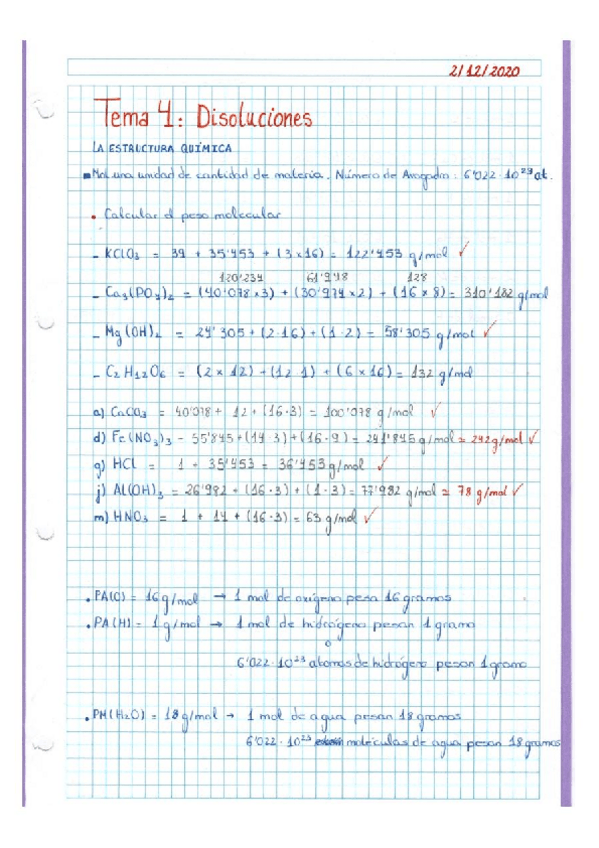 2/12/2020
Tema 4: Disoluciones
LA ESTRUCTURA QUÍMICA
Mol una unidad de cantidad de materia. Número de Avogadro: 6'022·10²³ at.
• Calcular el peso molecular
- KClO₃ = 39 + 35'453 + (3×16) = 122'453 g/mol ✓
120'234 61'948 128
- Ca₃(PO₄)₂ = (40'078×3) + (30'974×2) + (16×8) = 310'182 g/mol
- Mg(OH)₂ = 24'305 + (2·16) + (1·2) = 58'305 g/mol ✓
- C₂H₁₂O₆ = (2×12) + (12·1) + (6×16) = 132 g/mol
a) CaCO₃ = 40'078 + 12 + (16·3) = 100'078 g/mol ✓
d) Fe(NO₃)₃ = 55'845 + (14·3) + (16·9) = 241'845 g/mol = 242 g/mol ✓
g) HCl = 1 + 35'453 = 36'453 g/mol ✓
j) Al(OH)₃ = 26'982 + (16·3) + (1·3) = 77'982 g/mol = 78 g/mol ✓
m) HNO₃ = 1 + 14 + (16·3) = 63 g/mol ✓
• PA(O) = 16 g/mol → 1 mol de oxígeno pesa 16 gramos
• PA(H) = 1 g/mol → 1 mol de hidrógeno pesan 1 gramo
o
6'022·10²³ átomos de hidrógeno pesan 1 gramo
• PM(H₂O) = 18 g/mol → 1 mol de agua pesan 18 gramos
6'022·10²³ moléculas de agua pesan 18 gramos